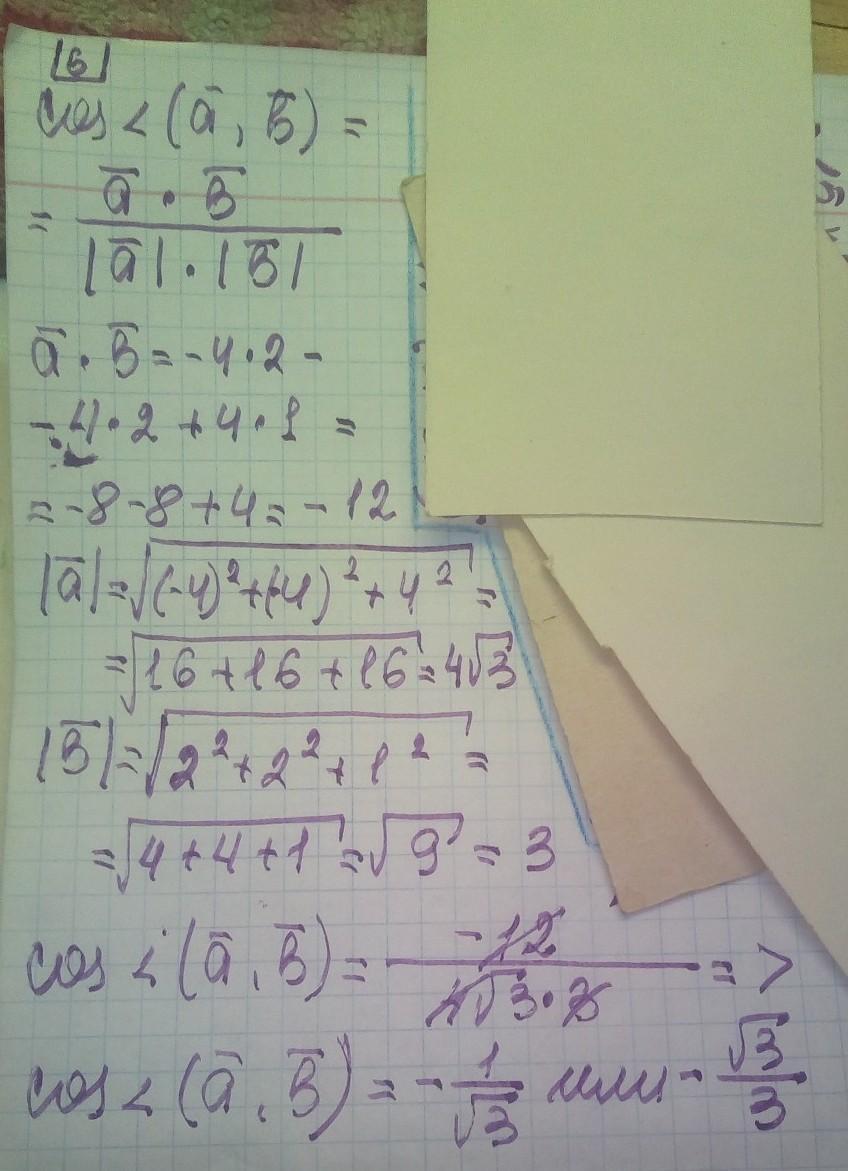 6
cos < (a̅, b̅) =
= (a̅ · b̅) / (|a̅| · |b̅|)
a̅ · b̅ = -4·2 -
- 4·2 + 4·1 =
= -8 -8 + 4 = -12
|a̅| = √((-4)² + (-4)² + 4²) =
= √(16 + 16 + 16) = 4√3
|b̅| = √(2² + 2² + 1²) =
= √(4 + 4 + 1) = √9 = 3
cos < (a̅, b̅) = -12 / (4√3·3) = >
cos < (a̅, b̅) = - 1/√3 или - √3/3